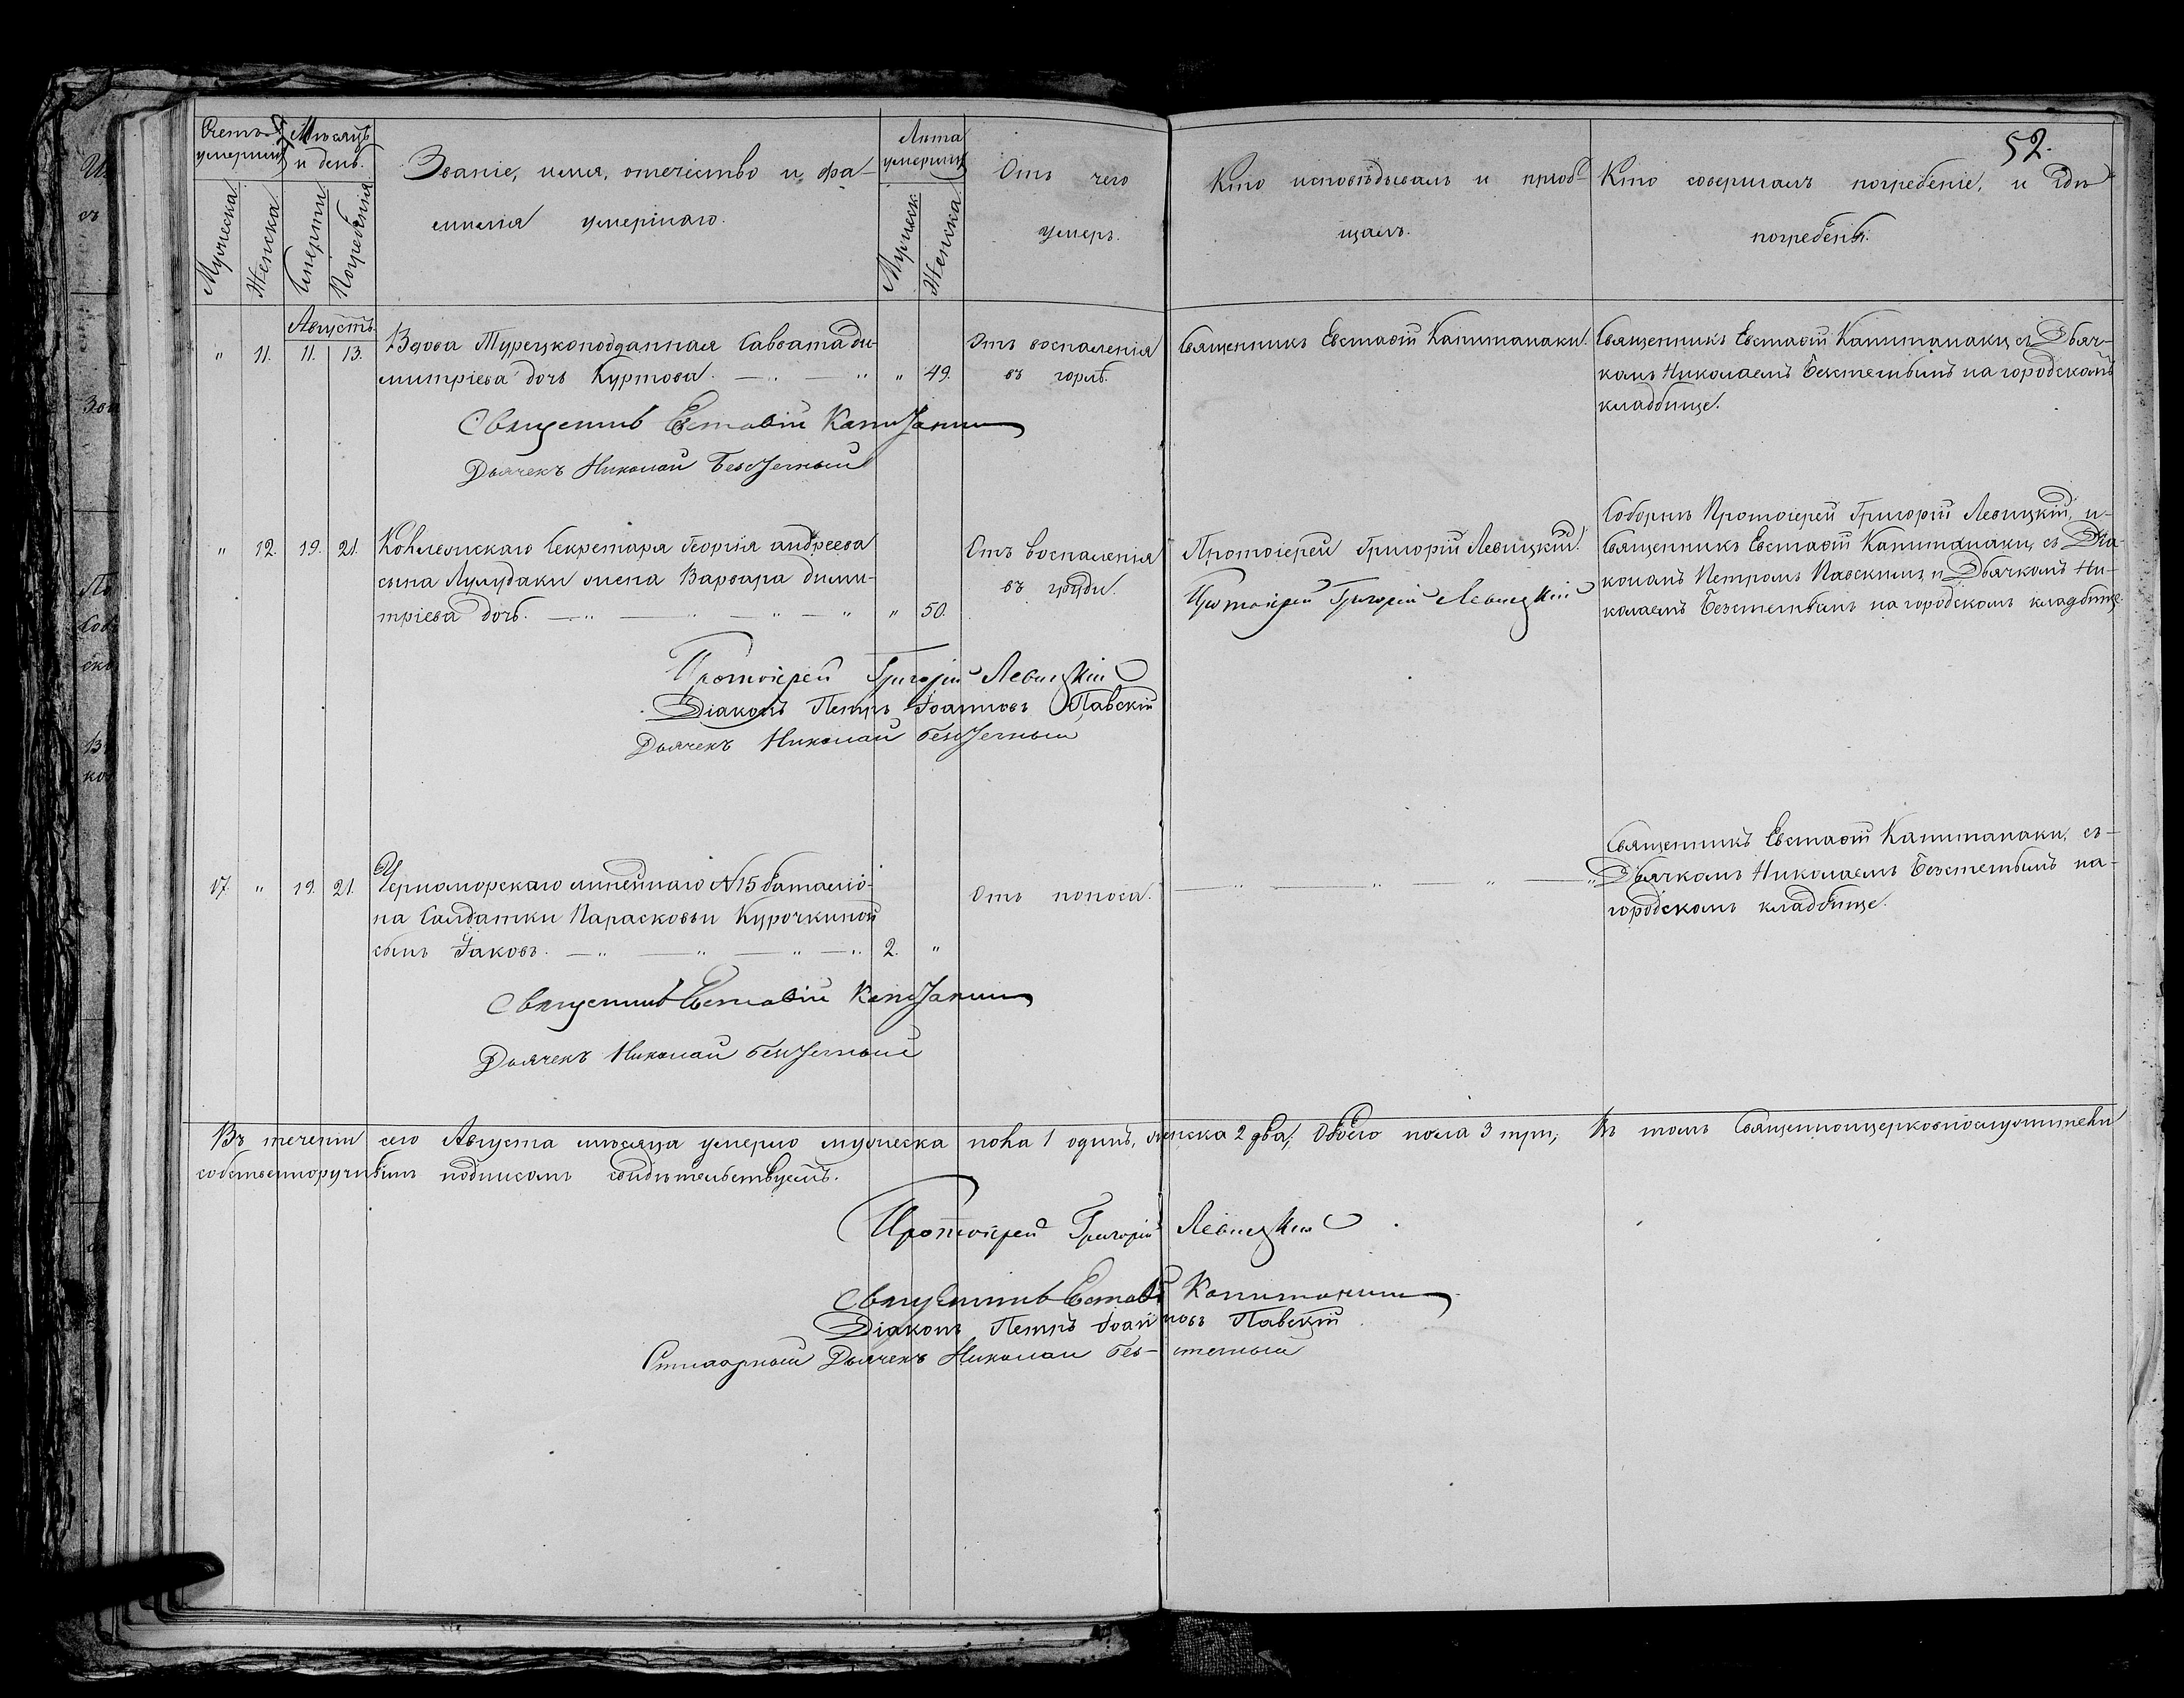 52.
Счетъ умершихъ
Мѣсяцъ и день.
Званіе, имя, отечество и фа-
милія умершаго.
Лѣта умершихъ
Отъ чего
умеръ.
Кто исповѣдывалъ и пріоб-
щалъ.
Кто совершалъ погребеніе, и гдѣ
погребены.
Мужеска
Женска
Смерти
Погребенія
Мужеск.
Женска
Августъ.
" 11. 11. 13.
Вдова Турецкоподданная Саввата Ди-
митріева дочь Куртова. " 49.
Отъ воспаленія
въ горлѣ.
Священникъ Евстафій Капитанаки.
Священникъ Евстафій Капитанаки, съ Дьяч-
комъ Николаемъ Безстетнымъ на городскомъ
кладбище.
Священникъ Евстафій Капитанаки
Дьячекъ Николай
" 12. 19. 21.
Секретаря Георгія Андреева
сына жена Варвара Дими-
тріева дочь. " 50.
Отъ воспаленія
въ груди.
Протоіерей Григорій Левицкій.
Протоіерей Григорій Левицкій
Соборнѣ Протоіерей Григорій Левицкій, и
Священникъ Евстафій Капитанаки, съ Діа-
кономъ Петромъ Павскимъ, и Дьячкомъ Ни-
колаемъ Безстетнымъ на городскомъ кладбище.
Протоіерей Григорій Левицкій
Діаконъ Петръ Іоанновъ Павскій
Дьячекъ Николай
17. " 19. 21.
Черноморскаго линейнаго №15 баталіо-
на Салдатки Парасковьи Курочкиной
сынъ Іаковъ. 2. "
Отъ поноса.
Священникъ Евстафій Капитанаки, съ
Дьячкомъ Николаемъ Безстетнымъ на
городскомъ кладбище.
Священникъ Евстафій Капитанаки
Дьячекъ Николай
Въ теченіи сего Августа мѣсяца умерло мужеска пола 1 одинъ, женска 2 два, Обоего пола 3 три; Въ томъ Священноцерковнослужители
собственноручнымъ подписомъ свидѣтельствуемъ.
Протоіерей Григорій Левицкій
Священникъ Евстафій Капитанаки
Діаконъ Петръ Іоанновъ Павскій
Дьячекъ Николай